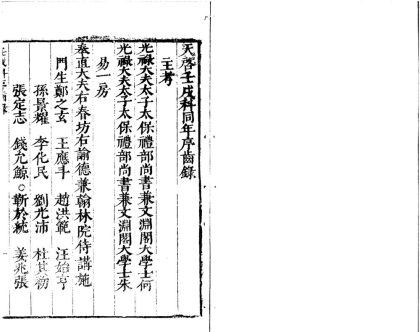 天啓壬戌科同年序齒錄
主考
光祿大夫太子太保禮部尚書兼文淵閣大學士何
光祿大夫太子太保禮部尚書兼文淵閣大學士朱
易一房
奉直大夫右春坊右諭德兼翰林院侍講施
門生鄭之玄 王應斗 趙洪範 汪始亨
孫景耀 李化民 劉光沛 杜其初
張定志 錢允鯨 ○靳於統 姜兆張